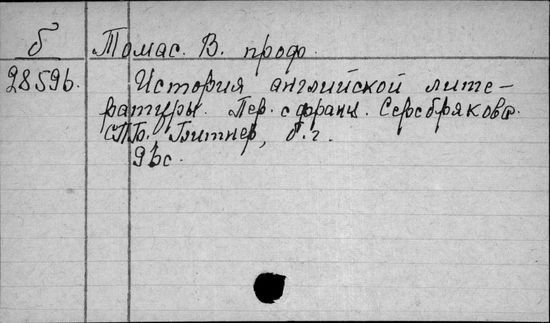 б Томас. В. проф.
28596. История английской лите-
ратуры. Пер. с франц. Серебрякова.
СПБ. Битнер, б. г.
96 с.